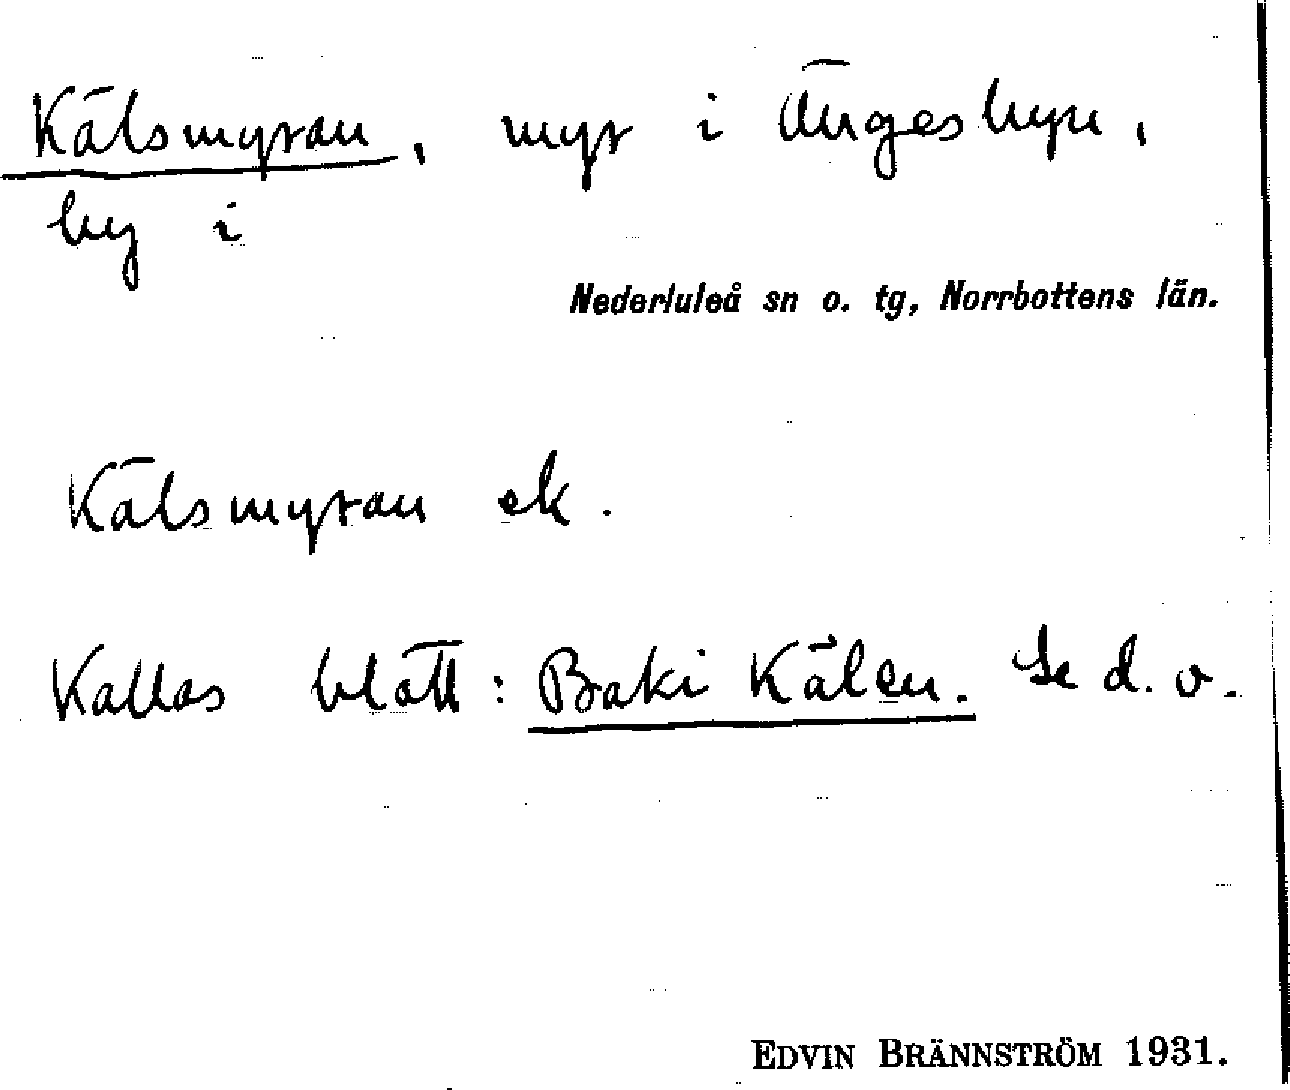 Kälsmyran, myr i Ängesbyn,
by i
Nederluleå sn o. tg, Norrbottens län.
Kälsmyran ek.
Kallas blott: Baki Kälen. Se d. o.
EDVIN BRÄNNSTRÖM 1931.